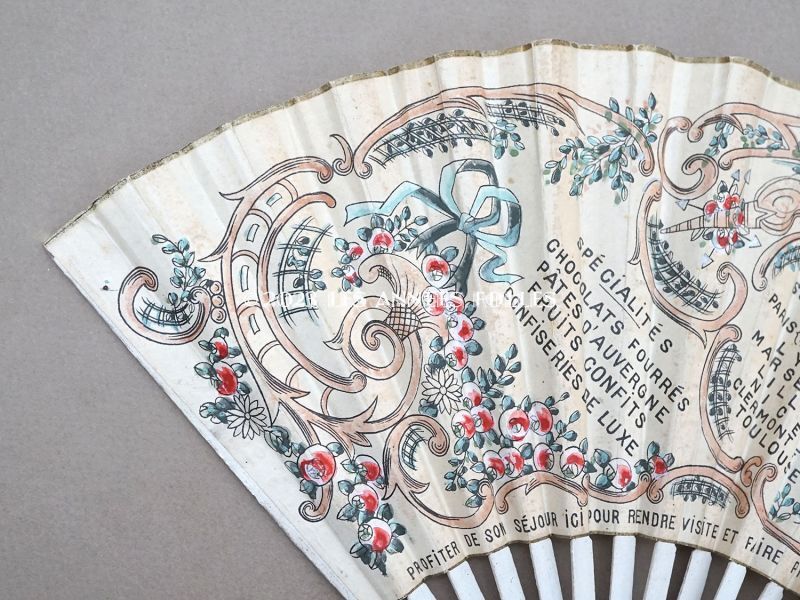 SPÉCIALITÉS
CHOCOLATS FOURRÉS
PÂTES D'AUVERGNE
FRUITS CONFITS
CONFISERIES DE LUXE
PARIS
LY
MARSE
LILL
NICE
CLERMONT
TOULOUSE
PROFITER DE SON SÉJOUR ICI POUR RENDRE VISITE ET FAIRE
© 2023 LES ANNEES FOLLES